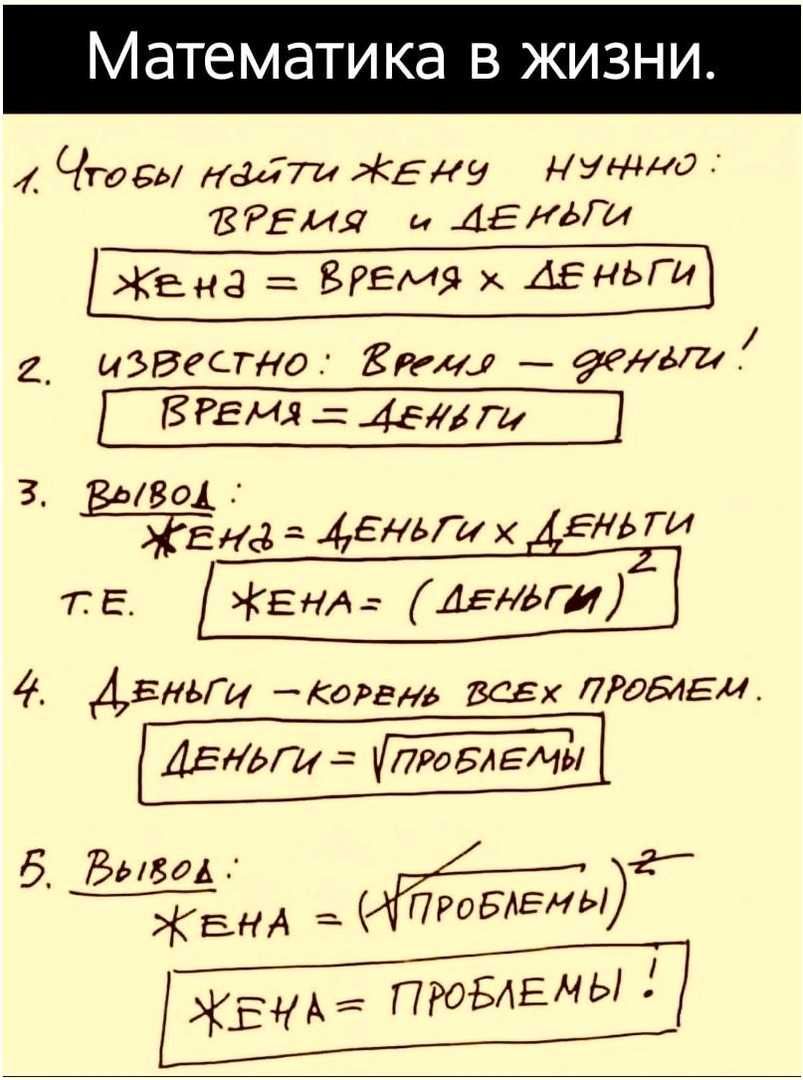 Математика в жизни.
1. Чтобы найти жену нужно:
время и деньги
жена = время x деньги
2. известно: Время — деньги!
время = деньги
3. Вывод:
жена = деньги x деньги
т.е. жена = (деньги)²
4. Деньги – корень всех проблем.
деньги = √проблемы
5. Вывод:
жена = (√проблемы)²
жена = проблемы!